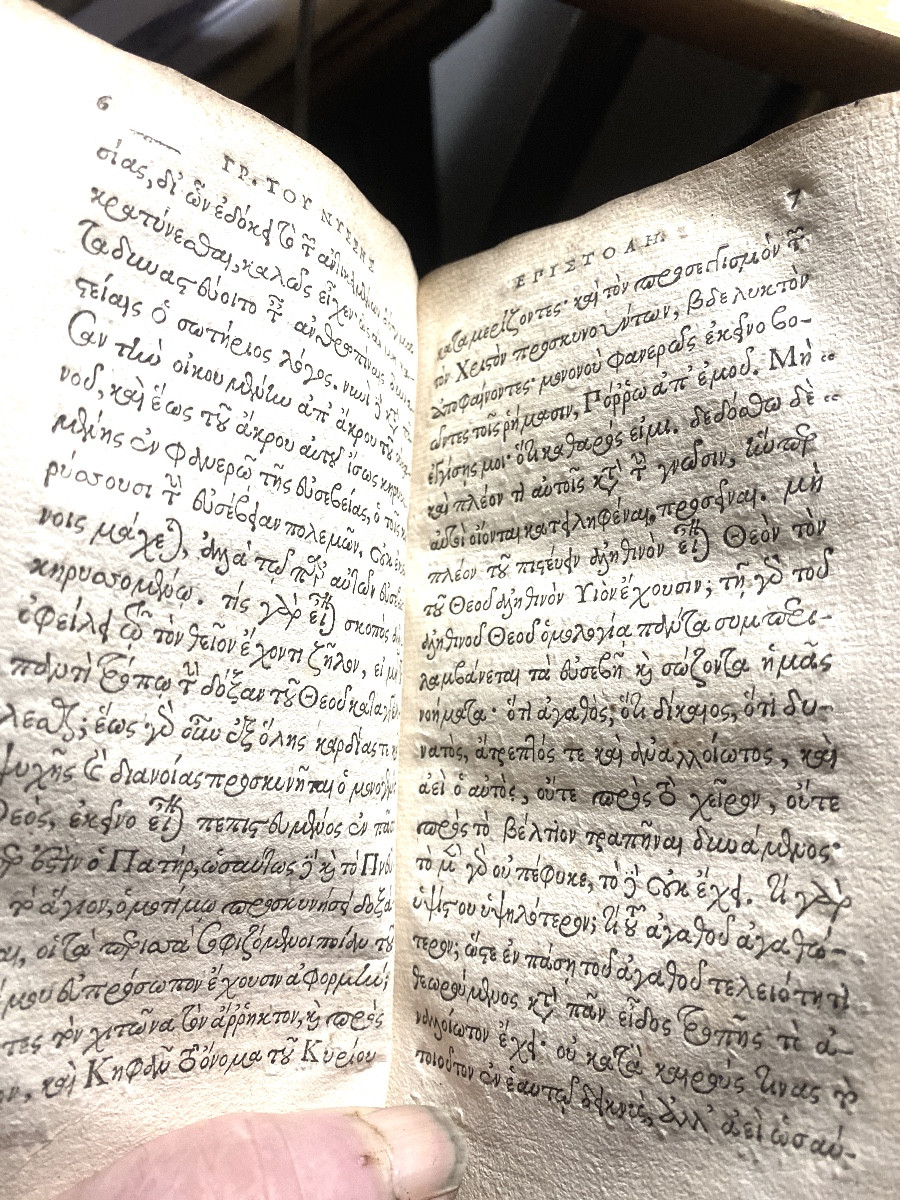 6
ΓΡ. ΤΟΥ ΝΥΣΣΗΣ
σίας, δι' ὧν ἐδόκει τὸ τῶν
κρατύνεσθαι, καλῶς εἶχεν
τῶν ἀνθρωπίνης
ὁ σωτήριος λόγος. νυνὶ δὲ κατὰ
σαν τὴν οἰκουμένην ἀπ' ἄκρου τοῦ
νοῦ, καὶ ἕως τοῦ ἄκρου αὐτοῦ ἴσως
μένης ἐν φανερῷ τῆς εὐσεβείας, ὁ τοῖς
ρύσσουσι τὴν εὐσέβειαν πολεμῶν, οὐκ
νοις μάχεται, ἀλλὰ τῷ παρ' αὐτῶν
κηρυσσομένῳ. τίς γὰρ εἶναι σκοπὸς
ὀφείλει τῷ τὸν θεῖον ἔχοντι ζῆλον, εἰ μὴ
παντὶ τρόπῳ τὴν δόξαν τοῦ Θεοῦ
ἕως γὰρ ἂν ἐξ ὅλης καρδίας τε
ψυχῆς καὶ διανοίας προσκυνῆται ὁ
Θεός, ἐκεῖνο εἶναι πεπιστευμένος ἐν
ἐστὶν ὁ Πατήρ, ὡσαύτως δὲ καὶ τὸ
τὸ ἅγιον, ὁμοτίμῳ προσκυνήσει
οἱ τὰ περισσὰ σοφιζόμενοι ποίαν τοῦ
εὐπρόσωπον ἔχουσιν ἀφορμήν;
τες τὸν χιτῶνα τὸν ἄρρηκτον, καὶ πρὸς
καὶ Κηφᾶν τὸ ὄνομα τοῦ Κυρίου
ΕΠΙΣΤΟΛΗ.
7
καταμερίζοντες· καὶ τὸν προσεγγισμὸν τῶν
τὸν Χριστὸν προσκυνούντων, βδελυκτὸν
ἀποφαίνοντες· μονονοὺ φανερῶς ἐκεῖνο βο-
ῶντες τοῖς ῥήμασιν, Πόρρω ἀπ' ἐμοῦ. Μὴ
ἐγγίσῃς μοι· ὅτι καθαρός εἰμι. δεδόσθω δὲ
καὶ πλέον τι αὐτοῖς κατὰ τὴν γνῶσιν, ἧς
αὐτοὶ οἴονται κατειληφέναι, προσεῖναι. μὴ
πλέον τοῦ πιστεύειν ἀληθινὸν εἶναι Θεὸν τὸν
τοῦ Θεοῦ ἀληθινὸν Υἱὸν ἔχουσιν; τῇ γὰρ τοῦ
ἀληθινοῦ Θεοῦ ὁμολογίᾳ πάντα συμπερι-
λαμβάνεται τὰ εὐσεβῆ καὶ σώζοντα ἡμᾶς
νοήματα· ὅτι ἀγαθός, ὅτι δίκαιος, ὅτι δυ-
νατός, ἄτρεπτός τε καὶ ἀναλλοίωτος, καὶ
ἀεὶ ὁ αὐτός, οὔτε πρὸς τὸ χεῖρον, οὔτε
πρὸς τὸ βέλτιον τραπῆναι δυνάμενος·
τὸ μὲν γὰρ οὐ πέφυκε, τὸ δὲ οὐκ ἔχει. τί γὰρ
ὑψίστου ὑψηλότερον; τί τοῦ ἀγαθοῦ ἀγαθώ-
τερον; ὥστε ἐν πάσῃ τοῦ ἀγαθοῦ τελειότητι
θεωρούμενος κατὰ πᾶν εἶδος τροπῆς τὸ ἀ-
ναλλοίωτον ἔχει· οὐ κατὰ καιρούς τινας τὸ
τοιοῦτον ἐν ἑαυτῷ δεικνύς, ἀλλ' ἀεὶ ὡσαύ-